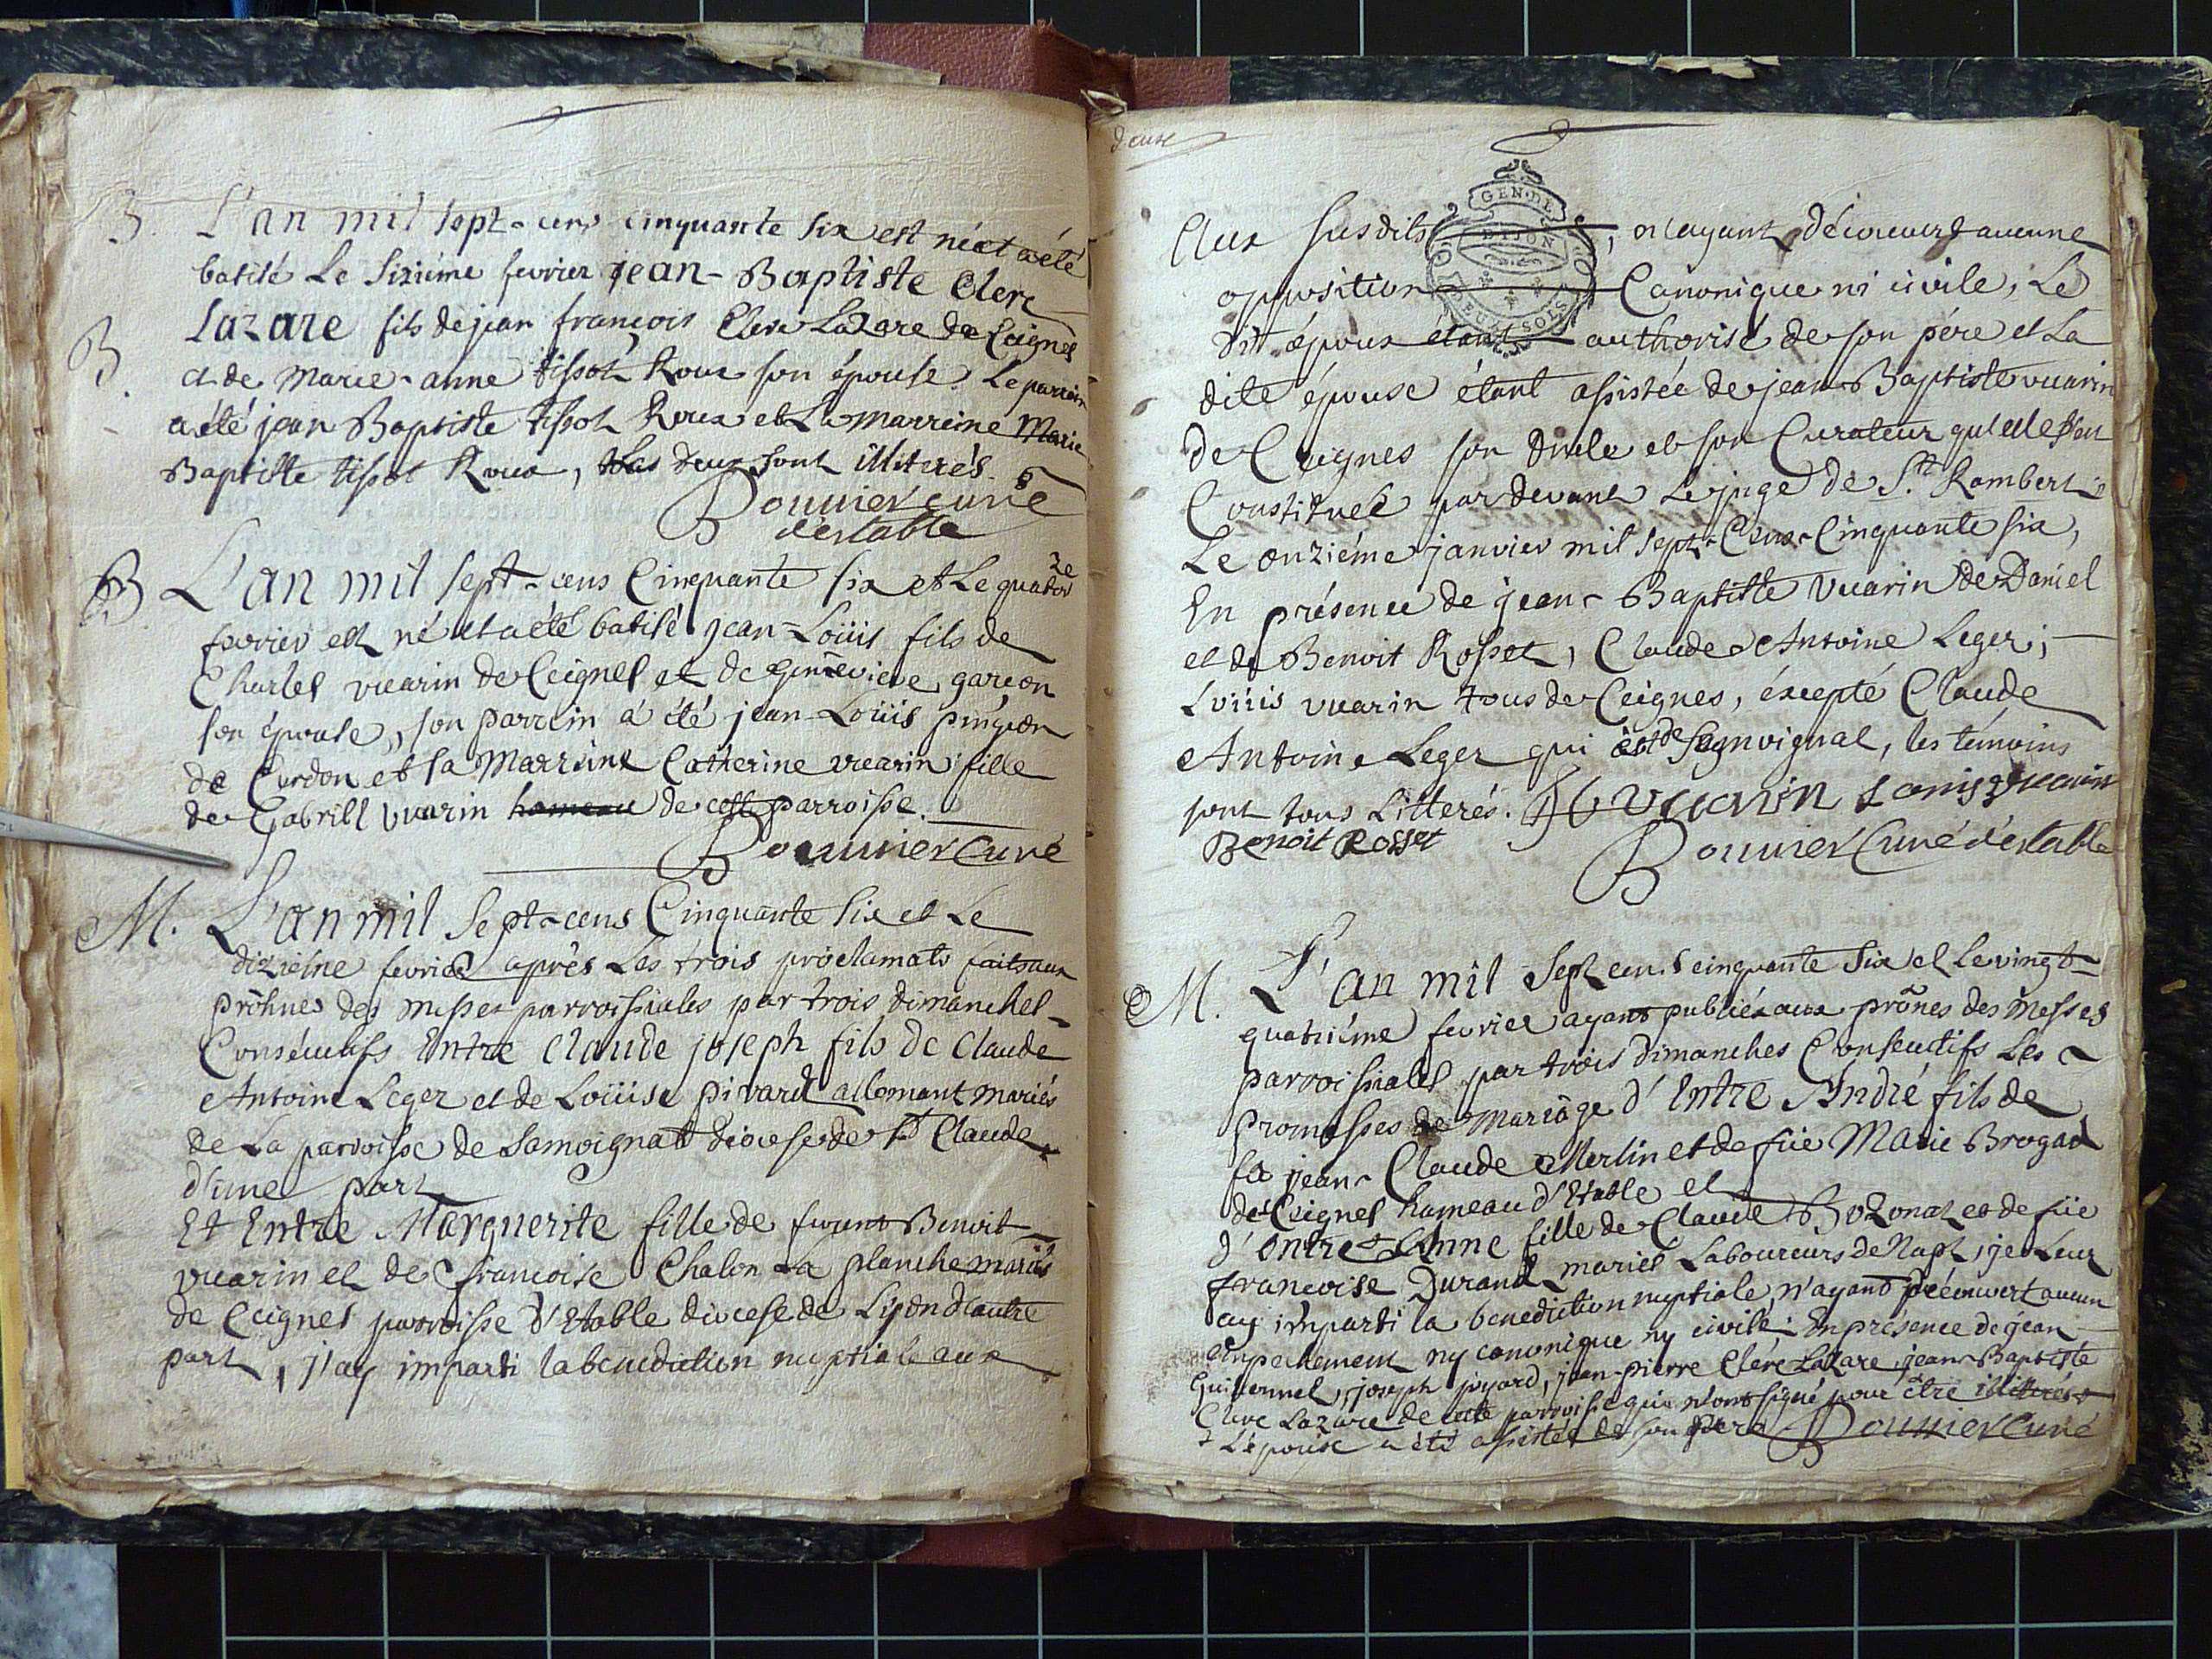 B. L'an mil sept-cens cinquante six est né et a été
batisé Le Sixiéme fevrier jean-Baptiste Clerc
B. Lazare fils de jean françois Clerc Lazare de Ceignes
et de Marie-anne tissot Roux son épouse. Le parrein
a été jean Baptiste tissot Roux et La marreine Marie
Baptiste tissot Roux, tous deux sont illiterés.
Bouvier curé
d'estable
B L'an mil sept-cens Cinquante six et Le quatorze
fevrier est né et a été batisé jean-Loüis fils de
Charles vuarin de Ceignes et de genevieve garçon
son épouse, son parrein a été jean-Loüis pingeon
de Cerdon et sa Marreine Catherine vuarin fille
de Gabriel vuarin hameau de cette parroisse.
Bouvier Curé
M. L'an mil Sept-cens Cinquante six et Le
dixiéme fevrier aprês Les trois proclamats faits aux
prôhnes des messes parroissiales par trois dimanches
Consécutifs Entre Claude joseph fils de Claude
Antoine Leger et de Loüise pivard allemant mariés
de La parroisse de Samoignat diocese de St Claude
d'une part
Et Entre Marguerite fille de Benoit
vuarin et de francoise Chalon La planche mariés
de Ceignes parroisse d'Etable diocese de Lyon d'autre
part, j'ay imparti la benediction nuptiale aux
deux
GEN. DE
DIJON
DEUX SOLS
Aux susdits, n'ayant découvert aucune
opposition Canonique ni civile, Le
dit époux étant authorisé de son pére et La
dite épouse étant assistée de jean-Baptiste vuarin
de Ceignes son oncle et son Curateur qu'elle s'est
Constituée par devant Le juge de St. Rambert
Le onziéme janvier mil sept-Cens-Cinquante six,
En présence de jean-Baptiste vuarin de Daniel
et de Benoit Rosset, Claude Antoine Leger;
Loüis vuarin tous de Ceignes, éxcepté Claude
Antoine Leger qui est de Samoignat, les témoins
sont tous Litterés. vuarin Louis vuarin
Benoit Rosset
Bouvier Curé d'estable
M. L'an mil Sept cens cinquante six et Le vingt-
quatriéme fevrier ayant publié aux prônes des Messes
parroissiales par trois dimanches Consecutifs Les
promesses de Mariage d'Entre André fils de
fû jean-Claude Merlin et de füe Marie Brogat
de Ceignes hameau d'Etable et
d'Entre Anne fille de Claude Bozonat et de füe
francoise Durand mariés Laboureurs de Napt, je Leur
ay imparti la benediction nuptiale, n'ayant découvert aucun
empechement ny canonique ny civile. En présence de jean
Guigonnet, joseph joyard, jean-pierre Clerc Lazare, jean-Baptiste
Clerc Lazare de cette parroisse qui n'ont signé pour être illitterés
L'épouse a été assistée de son pere Bouvier Curé